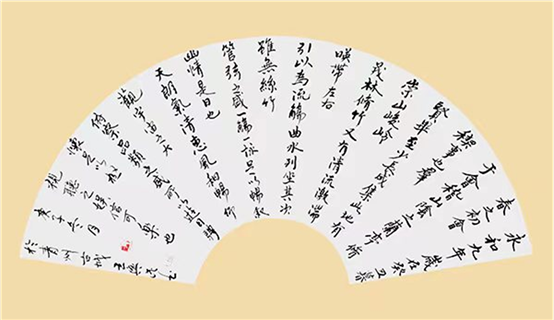 永和九年歲在癸丑暮
春之初會
于會稽山陰之蘭亭脩
稧事也羣
賢畢至少長咸集此地有
崇山峻嶺
茂林脩竹又有清流激湍
暎帶左右
引以為流觴曲水列坐其次
雖無絲竹
管弦之盛一觴一詠足以暢敘
幽情是日也
天朗氣清惠風和暢仰
觀宇宙之大
俯察品類之盛可以遊目騁
懷足以極
視聽之娛信可樂也
庚子六月
於青州古城王